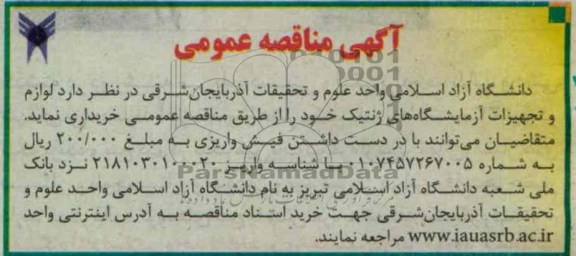 آگهی مناقصه عمومی
دانشگاه آزاد اسلامی واحد علوم و تحقیقات آذربایجان‌شرقی در نظر دارد لوازم
و تجهیزات آزمایشگاه‌های ژنتیک خود را از طریق مناقصه عمومی خریداری نماید.
متقاضیان می‌توانند با در دست داشتن فیش واریزی به مبلغ ۲۰۰/۰۰۰ ریال
به شماره ۰۱۰۷۴۵۷۲۶۷۰۰۵ با شناسه واریز ۲۱۸۱۰۳۰۱۰۰۰۲۰ نزد بانک
ملی شعبه دانشگاه آزاد اسلامی تبریز به نام دانشگاه آزاد اسلامی واحد علوم و
تحقیقات آذربایجان‌شرقی جهت خرید اسناد مناقصه به آدرس اینترنتی واحد
www.iauasrb.ac.ir مراجعه نمایند.
ParsNamadData